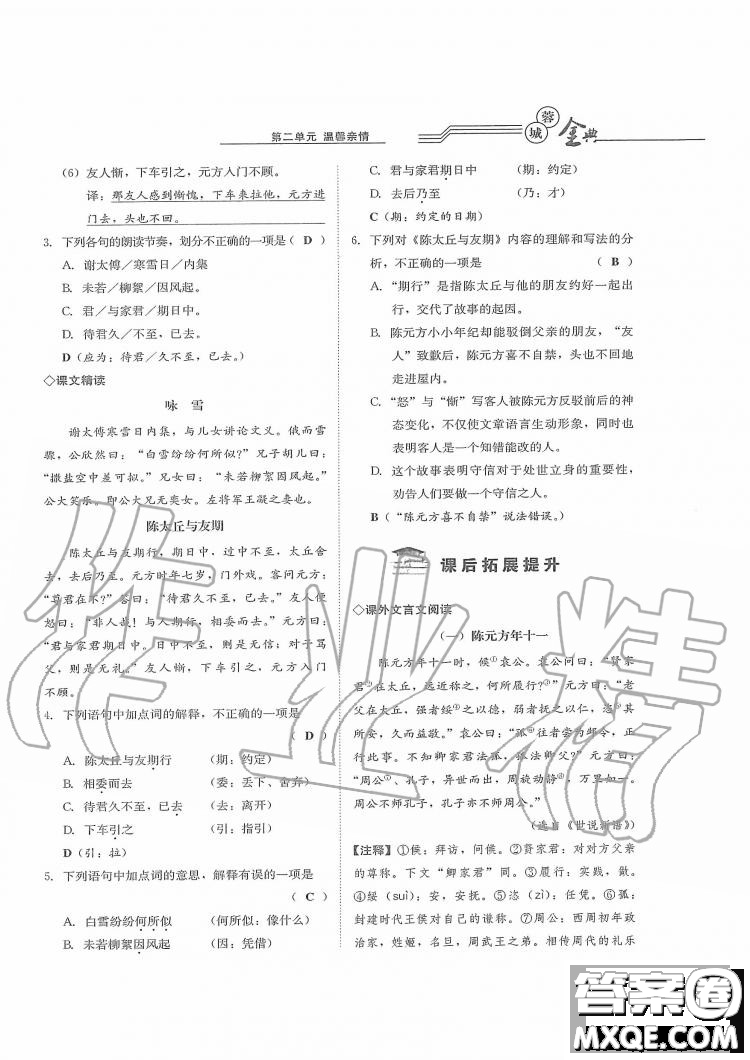 第二单元 温馨亲情
蓉
城
金典
(6) 友人惭，下车引之，元方入门不顾。
译：那友人感到惭愧，下车来拉他，元方进
门去，头也不回。
3. 下列各句的朗读节奏，划分不正确的一项是( D )
A. 谢太傅／寒雪日／内集
B. 未若／柳絮／因风起。
C. 君／与家君／期日中。
D. 待君久／不至，已去。
D(应为：待君／久不至，已去。)
◇课文精读
咏 雪
谢太傅寒雪日内集，与儿女讲论文义。俄而雪
骤，公欣然曰：“白雪纷纷何所似？”兄子胡儿曰：
“撒盐空中差可拟。”兄女曰：“未若柳絮因风起。”
公大笑乐。即公大兄无奕女。左将军王凝之妻也。
陈太丘与友期
陈太丘与友期行，期日中，过中不至，太丘舍
去，去后乃至。元方时年七岁，门外戏。客问元方：
“尊君在不？”答曰：“待君久不至，已去。”友人便
怒曰：“非人哉！与人期行，相委而去。”元方曰：
“君与家君期日中。日中不至，则是无信；对子骂
父，则是无礼。”友人惭，下车引之，元方入门
不顾。
4. 下列语句中加点词的解释，不正确的一项是
( D )
A. 陈太丘与友期行 (期：约定)
B. 相委而去 (委：丢下、舍弃)
C. 待君久不至，已去 (去：离开)
D. 下车引之 (引：指引)
D(引：拉)
5. 下列语句中加点词的意思，解释有误的一项是
( C )
A. 白雪纷纷何所似 (何所似：像什么)
B. 未若柳絮因风起 (因：凭借)
C. 君与家君期日中 (期：约定)
D. 去后乃至 (乃：才)
C(期：约定的日期)
6. 下列对《陈太丘与友期》内容的理解和写法的分
析，不正确的一项是 ( B )
A. “期行”是指陈太丘与他的朋友约好一起出
行，交代了故事的起因。
B. 陈元方小小年纪却能驳倒父亲的朋友，“友
人”致歉后，陈元方喜不自禁，头也不回地
走进屋内。
C. “怒”与“惭”写客人被陈元方反驳前后的神
态变化，不仅使文章语言生动形象，同时也
表明客人是一个知错能改的人。
D. 这个故事表明守信对于处世立身的重要性，
劝告人们要做一个守信之人。
B(“陈元方喜不自禁”说法错误。)
课后拓展提升
◇课外文言文阅读
(一) 陈元方年十一
陈元方年十一时，候①袁公。袁公问曰：“贤家
君②在太丘，远近称之，何所履行③？”元方曰：“老
父在太丘，强者绥④之以德，弱者抚之以仁，恣⑤其
所安，久而益敬。”袁公曰：“孤⑥往者尝为邺令，正
行此事。不知卿家君法孤，孤法卿父？”元方曰：
“周公⑦、孔子，异世而出，周旋动静⑧，万里如一。
周公不师孔子，孔子亦不师周公。”
(选自《世说新语》)
【注释】①候：拜访，问候。②贤家君：对对方父亲
的尊称。下文“卿家君”同。③履行：实践，做。
④绥(suí)：安，安抚。⑤恣(zì)：任凭。⑥孤：
封建时代王侯对自己的谦称。⑦周公：西周初年政
治家，姓姬，名旦，周武王之弟。相传周代的礼乐
作业精灵
答案卷
MXQE.COM